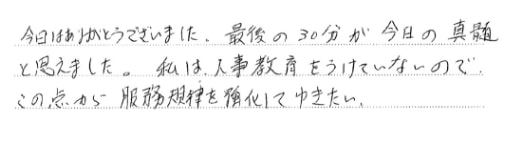 今日はありがとうございました、最後の30分が今日の真髄
と思えました。私は、人事教育をうけていないので、
この点から服務規律を強化してゆきたい、